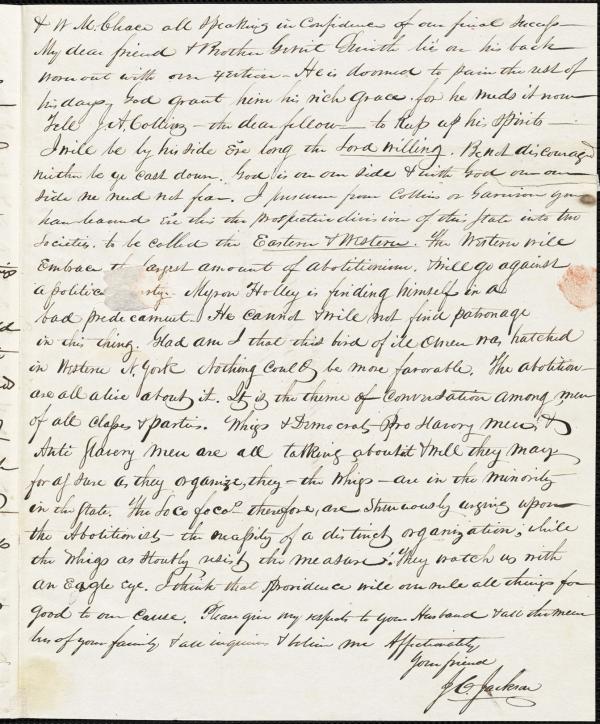 & W. M. Chace all speaking in Confidence of our final success—
My dear friend & Brother Gerrit Smith lies on his back
worn out with over exertion—He is doomed to pain the rest of
his days, God grant him his rich Grace, for he needs it now—
Tell J. A. Collins—the dear fellow—to keep up his spirits—
I will be by his side Ere long the Lord willing. Be not discouraged
neither be ye cast down. God is on our side & with God on our
side we need not fear. I presume from Collins or Garrison you
have learned Ere this the prospective division of this State into two
Societies. to be called the Eastern & Western. The Western will
Embrace the largest amount of abolitionism. & will go against
a politica party. Myron Holley is finding himself in a
bad predicament. He cannot & will not find patronage
in this thing. Glad am I that this bird of ill Omen was hatched
in Western N. York Nothing could be more favorable. The abolition-
are all alive about it. It is the theme of Conversation among men
of all classes & parties. Whigs & Democrats Pro Slavery men, &
Anti Slavery men are all talking about it & well they may
for as sure as they organize, they—the Whigs—are in the minority
in the State. The Loco focos therefore, are Strenuously urging upon
the Abolitionists—the necessity of a distinct organization; while
the Whigs as stoutly resist the measure. They watch us with
an Eagle eye. I think that Providence will overrule all things for
good to our Cause. Please give my respects to your Husband & all the mem
bers of your family & all inquirers & believe me Affectionately
Your friend
J. C. Jackson